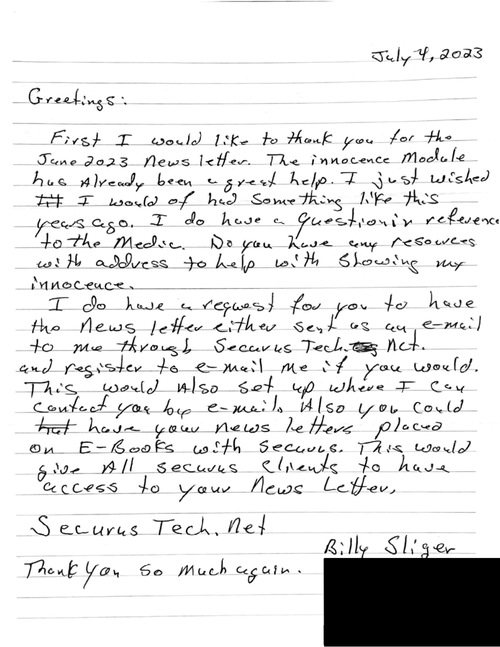 July 4, 2023
Greetings:
First I would like to thank you for the
June 2023 News letter. The innocence Module
has Already been a great help. I just wished
I would of had Something like this
years ago. I do have a question in reference
to the Media. Do you have any resources
with address to help with Showing my
innocence.
I do have a request for you to have
the News letter either sent as an e-mail
to me through Securus Tech. Net.
and register to e-mail me if you would.
This would Also set up where I can
contact you by e-mail. Also you could
have your news letters placed
on E-Books with Securus. This would
give All Securus Clients to have
access to your News Letter.
Securus Tech. Net
Billy Sliger
Thank You So Much again.